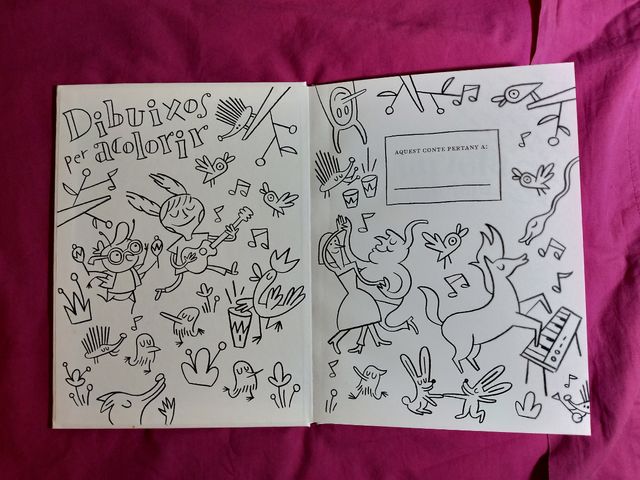 Dibuixos
per acolorir
AQUEST CONTE PERTANY A: